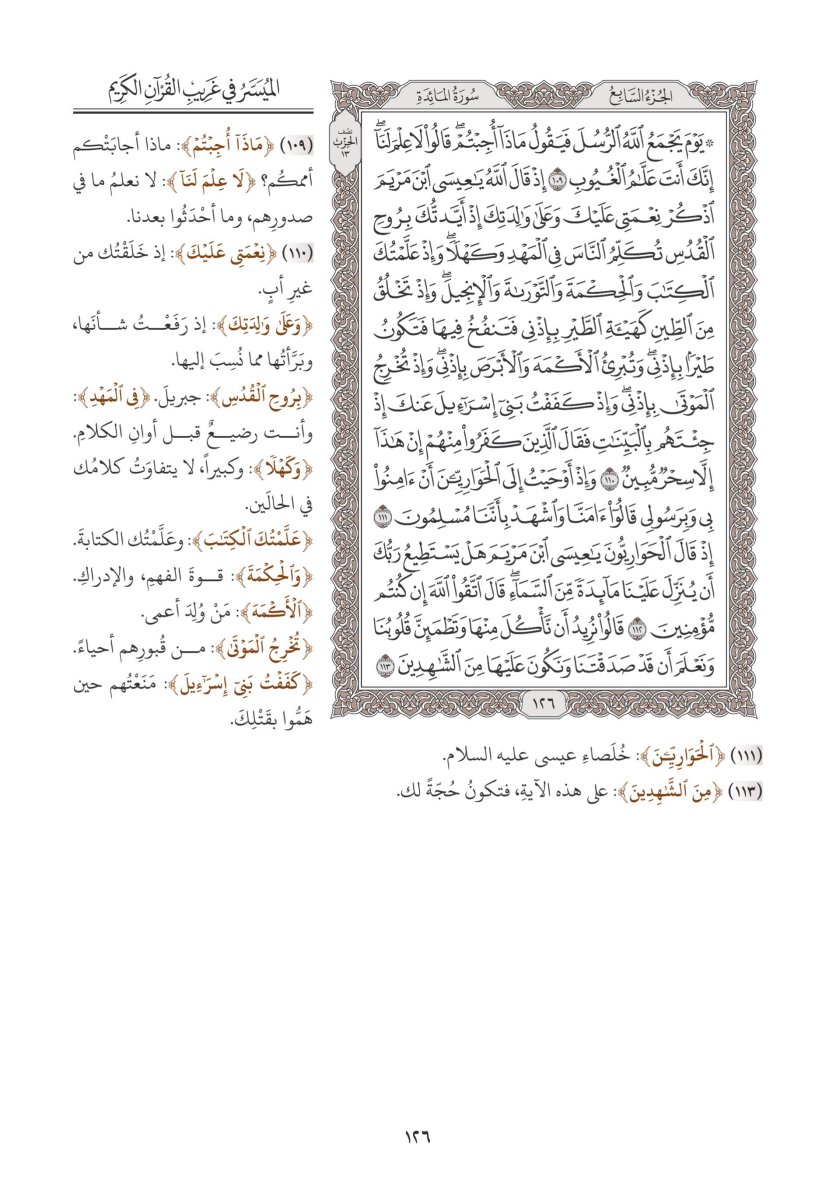 الميسر في غريب القرآن الكريم
الجزء السابع
سورة المائدة
نصف
الحزب
١٣
* يَوْمَ يَجْمَعُ ٱللَّهُ ٱلرُّسُلَ فَيَقُولُ مَاذَآ أُجِبْتُمْۖ قَالُوا۟ لَا عِلْمَ لَنَآۖ
إِنَّكَ أَنتَ عَلَّٰمُ ٱلْغُيُوبِ ١٠٩ إِذْ قَالَ ٱللَّهُ يَٰعِيسَى ٱبْنَ مَرْيَمَ
ٱذْكُرْ نِعْمَتِى عَلَيْكَ وَعَلَىٰ وَٰلِدَتِكَ إِذْ أَيَّدتُّكَ بِرُوحِ
ٱلْقُدُسِ تُكَلِّمُ ٱلنَّاسَ فِى ٱلْمَهْدِ وَكَهْلًاۖ وَإِذْ عَلَّمْتُكَ
ٱلْكِتَٰبَ وَٱلْحِكْمَةَ وَٱلتَّوْرَىٰةَ وَٱلْإِنجِيلَۖ وَإِذْ تَخْلُقُ
مِنَ ٱلطِّينِ كَهَيْـَٔةِ ٱلطَّيْرِ بِإِذْنِى فَتَنفُخُ فِيهَا فَتَكُونُ
طَيْرًۢا بِإِذْنِىۖ وَتُبْرِئُ ٱلْأَكْمَهَ وَٱلْأَبْرَصَ بِإِذْنِىۖ وَإِذْ تُخْرِجُ
ٱلْمَوْتَىٰ بِإِذْنِىۖ وَإِذْ كَفَفْتُ بَنِىٓ إِسْرَٰٓءِيلَ عَنكَ إِذْ
جِئْتَهُم بِٱلْبَيِّنَٰتِ فَقَالَ ٱلَّذِينَ كَفَرُوا۟ مِنْهُمْ إِنْ هَٰذَآ
إِلَّا سِحْرٌ مُّبِينٌ ١١٠ وَإِذْ أَوْحَيْتُ إِلَى ٱلْحَوَارِيِّـۧنَ أَنْ ءَامِنُوا۟
بِى وَبِرَسُولِى قَالُوٓا۟ ءَامَنَّا وَٱشْهَدْ بِأَنَّنَا مُسْلِمُونَ ١١١
إِذْ قَالَ ٱلْحَوَارِيُّونَ يَٰعِيسَى ٱبْنَ مَرْيَمَ هَلْ يَسْتَطِيعُ رَبُّكَ
أَن يُنَزِّلَ عَلَيْنَا مَآئِدَةً مِّنَ ٱلسَّمَآءِۖ قَالَ ٱتَّقُوا۟ ٱللَّهَ إِن كُنتُم
مُّؤْمِنِينَ ١١٢ قَالُوا۟ نُرِيدُ أَن نَّأْكُلَ مِنْهَا وَتَطْمَئِنَّ قُلُوبُنَا
وَنَعْلَمَ أَن قَدْ صَدَقْتَنَا وَنَكُونَ عَلَيْهَا مِنَ ٱلشَّٰهِدِينَ ١١٣
١٢٦
(١٠٩) ﴿مَاذَآ أُجِبْتُمْ﴾: ماذا أجابَتْكم
أممكُم؟ ﴿لَا عِلْمَ لَنَآ﴾: لا نعلمُ ما في
صدورِهم، وما أحْدَثُوا بعدنا.
(١١٠) ﴿نِعْمَتِى عَلَيْكَ﴾: إذ خَلَقْتُك من
غيرِ أبٍ.
﴿وَعَلَىٰ وَٰلِدَتِكَ﴾: إذ رَفَعْتُ شأنَها،
وبَرَّأتُها مما نُسِبَ إليها.
﴿بِرُوحِ ٱلْقُدُسِ﴾: جبريلَ. ﴿فِى ٱلْمَهْدِ﴾:
وأنت رضيعٌ قبل أوانِ الكلامِ.
﴿وَكَهْلًا﴾: وكبيراً، لا يتفاوَتُ كلامُك
في الحالَين.
﴿عَلَّمْتُكَ ٱلْكِتَٰبَ﴾: وعَلَّمْتُك الكتابةَ.
﴿وَٱلْحِكْمَةَ﴾: قوةَ الفهمِ، والإدراكِ.
﴿ٱلْأَكْمَهَ﴾: مَنْ وُلِدَ أعمى.
﴿تُخْرِجُ ٱلْمَوْتَىٰ﴾: من قُبورِهم أحياءً.
﴿كَفَفْتُ بَنِىٓ إِسْرَٰٓءِيلَ﴾: مَنَعْتُهم حين
هَمُّوا بقَتْلِكَ.
(١١١) ﴿ٱلْحَوَارِيِّـۧنَ﴾: خُلَصاءِ عيسى عليه السلام.
(١١٣) ﴿مِنَ ٱلشَّٰهِدِينَ﴾: على هذه الآيةِ، فتكونُ حُجّةً لك.
١٢٦